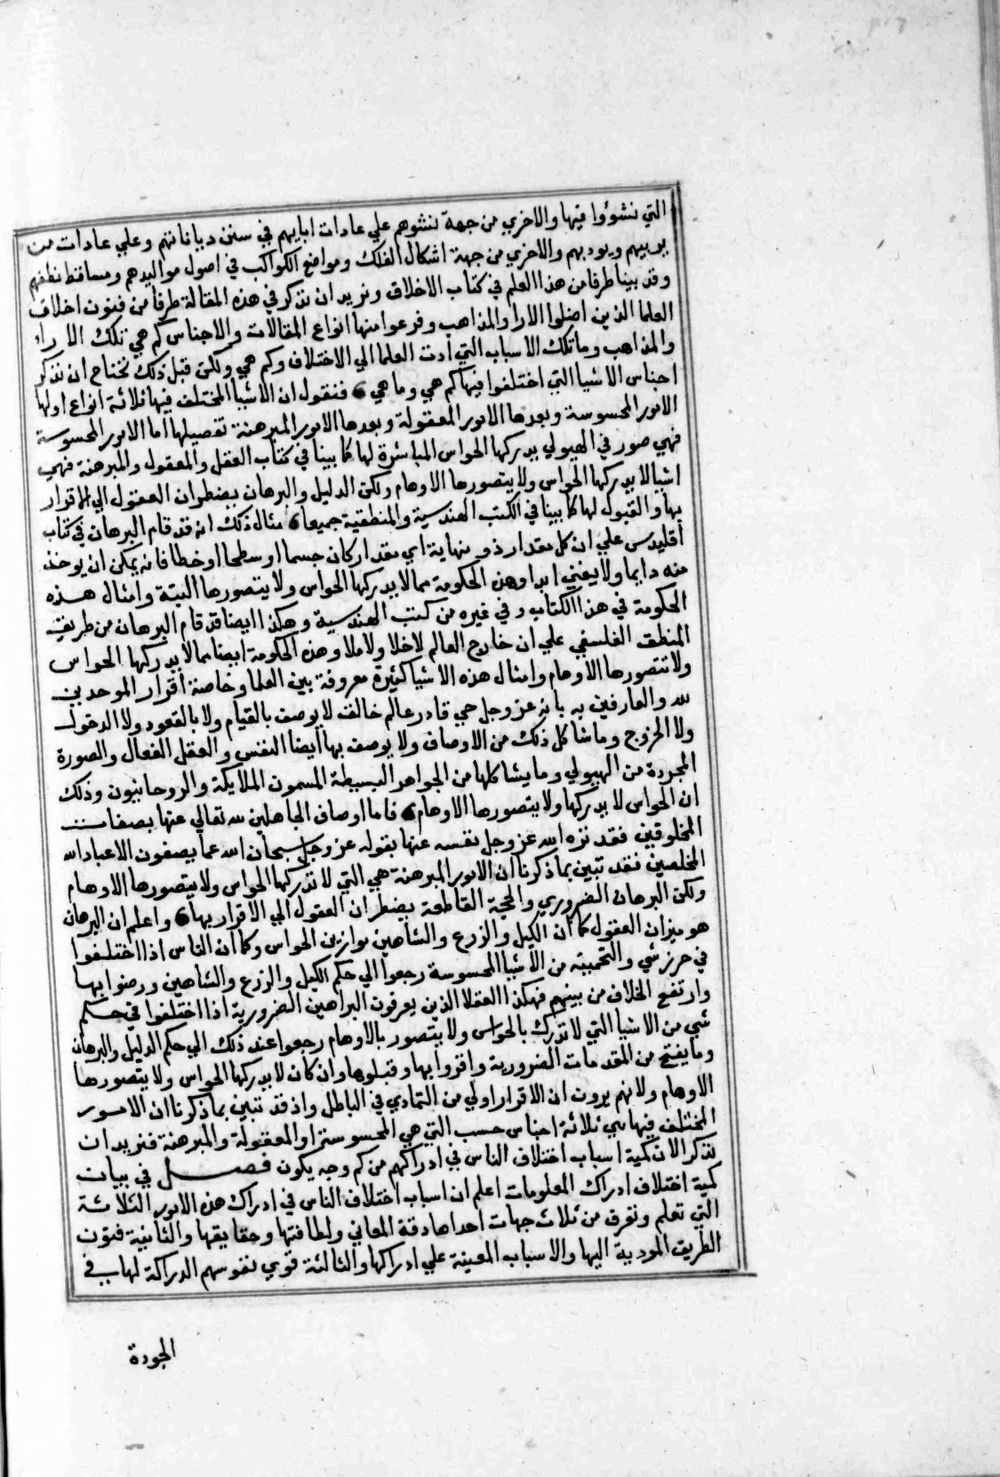 التي نشوؤا فيها والاخري من جهة نشوهم علي عادات ابايهم في سنن دياناتهم وعلي عادات من
يربيهم ويودبهم والاخري من جهة اشكال الفلك ومواضع الكواكب في اصول مواليدهم ومساقط نطفهم
وقد بينا طرفا من هذا العلم في كتاب الاخلاق ونريد ان نذكر في هذه المقالة طرفا من فنون اختلاف
العلما الذين اصلوا الارا والمذاهب وفرعوا منها انواع المقالات والاجناس كم هي تلك الارا
والمذاهب وما تلك الاسباب التي ادت العلما الي الاختلاف وكم هي ولكن قبل ذلك نحتاج ان نذكر
اجناس الاشيا التي اختلفوا فيها كم هي وما هي فنقول ان الاشيا المختلف فيها ثلاثة انواع اولها
الامور المحسوسة وبعدها الامور المعقولة وبعدها الامور المبرهنة تفصيلها اما الامور المحسوسة
فهي صور في الهيولي يدركها الحواس المباشرة لها كما بينا في كتاب العقل والمعقول والمبرهنة فهي
اشيا لا يدركها الحواس ولا يتصورها الاوهام ولكن الدليل والبرهان يضطران العقول الي الاقرار
بها والقبول لها كما بينا في الكتب الهندسية والمنطقية جميعا مثال ذلك انه قد قام البرهان في كتاب
أقليدس علي ان كل مقدار ذو نهاية اي مقدار كان جسما او سطحا او خطا فانه يمكن ان يوخذ
منه دايما ولا يفني ابدا وهذه الحكومة مما لا يدركها الحواس ولا يتصورها البتة وامثال هذه
الحكومة في هذا الكتاب وفي غيره من كتب الهندسية وهكذا ايضا قد قام البرهان من طريق
المنطق الفلسفي علي ان خارج العالم لا خلا ولا ملا وهذه الحكومة ايضا مما لا يدركها الحواس
ولا تتصورها الاوهام وامثال هذه الاشيا كثيرة معروفة بين العلما وخاصة اقرار الموحدين
لله والعارفين به بانه عز وجل حي قادر عالم خالق لا يوصف بالقيام ولا بالقعود ولا الدخول
ولا الخروج وما شاكل ذلك من الاوصاف ولا يوصف بها ايضا النفس والعقل الفعال والصورة
المجردة من الهيولي وما يشاكلها من الجواهر البسيطة المسمون الملايكة والروحانيون وذلك
ان الحواس لا يدركها ولا يتصورها الاوهام فاما اوصاف الجاهلين لله تعالي عنها بصفات
المخلوقين فقد نزه الله عز وجل نفسه عنها بقوله عز وجل سبحان الله عما يصفون الا عباد الله
المخلصين فقد تبين بما ذكرنا ان الامور المبرهنة هي التي لا تدركها الحواس ولا يتصورها الاوهام
ولكن البرهان الضروري والحجة القاطعة يضطران العقول الي الاقرار بها واعلم ان البرهان
هو ميزان العقول كما ان الكيل والزرع والشاهين موازين الحواس وكما ان الناس اذا اختلفوا
في حرز شي والتخمينه من الاشيا المحسوسة رجعوا الي حكم الكيل والزرع والشاهين ورضوا بها
وارتفع الخلاف من بينهم فهكذا العقلا الذين يعرفون البراهين الضرورية اذا اختلفوا في حكم
شي من الاشيا التي لا تدرك بالحواس ولا يتصور بالاوهام رجعوا عند ذلك الي حكم الدليل والبرهان
وما ينتج من المقدمات الضرورية واقروا بها وقبلوها وان كان لا يدركها الحواس ولا يتصورها
الاوهام ولانهم يرون ان الاقرار اولي من التمادي في الباطل واذ قد تبين بما ذكرنا ان الامور
المختلف فيها هي ثلاثة اجناس حسب التي هي المحسوسة والمعقولة والمبرهنة فنريد ان
نذكر الان كمية اسباب اختلاف الناس في ادراكهم من كم وجه يكون فصل في بيان
كمية اختلاف ادراك المعلومات اعلم ان اسباب اختلاف الناس في ادراك هذه الامور الثلاثة
التي تعلم وتعرف من ثلاث جهات احداها دقة المعاني ولطافتها وحقايقها والثانية فنون
الطريق المودية اليها والاسباب المعينة علي ادراكها والثالثة قوي نفوسهم الدراكة لها في
الجودة